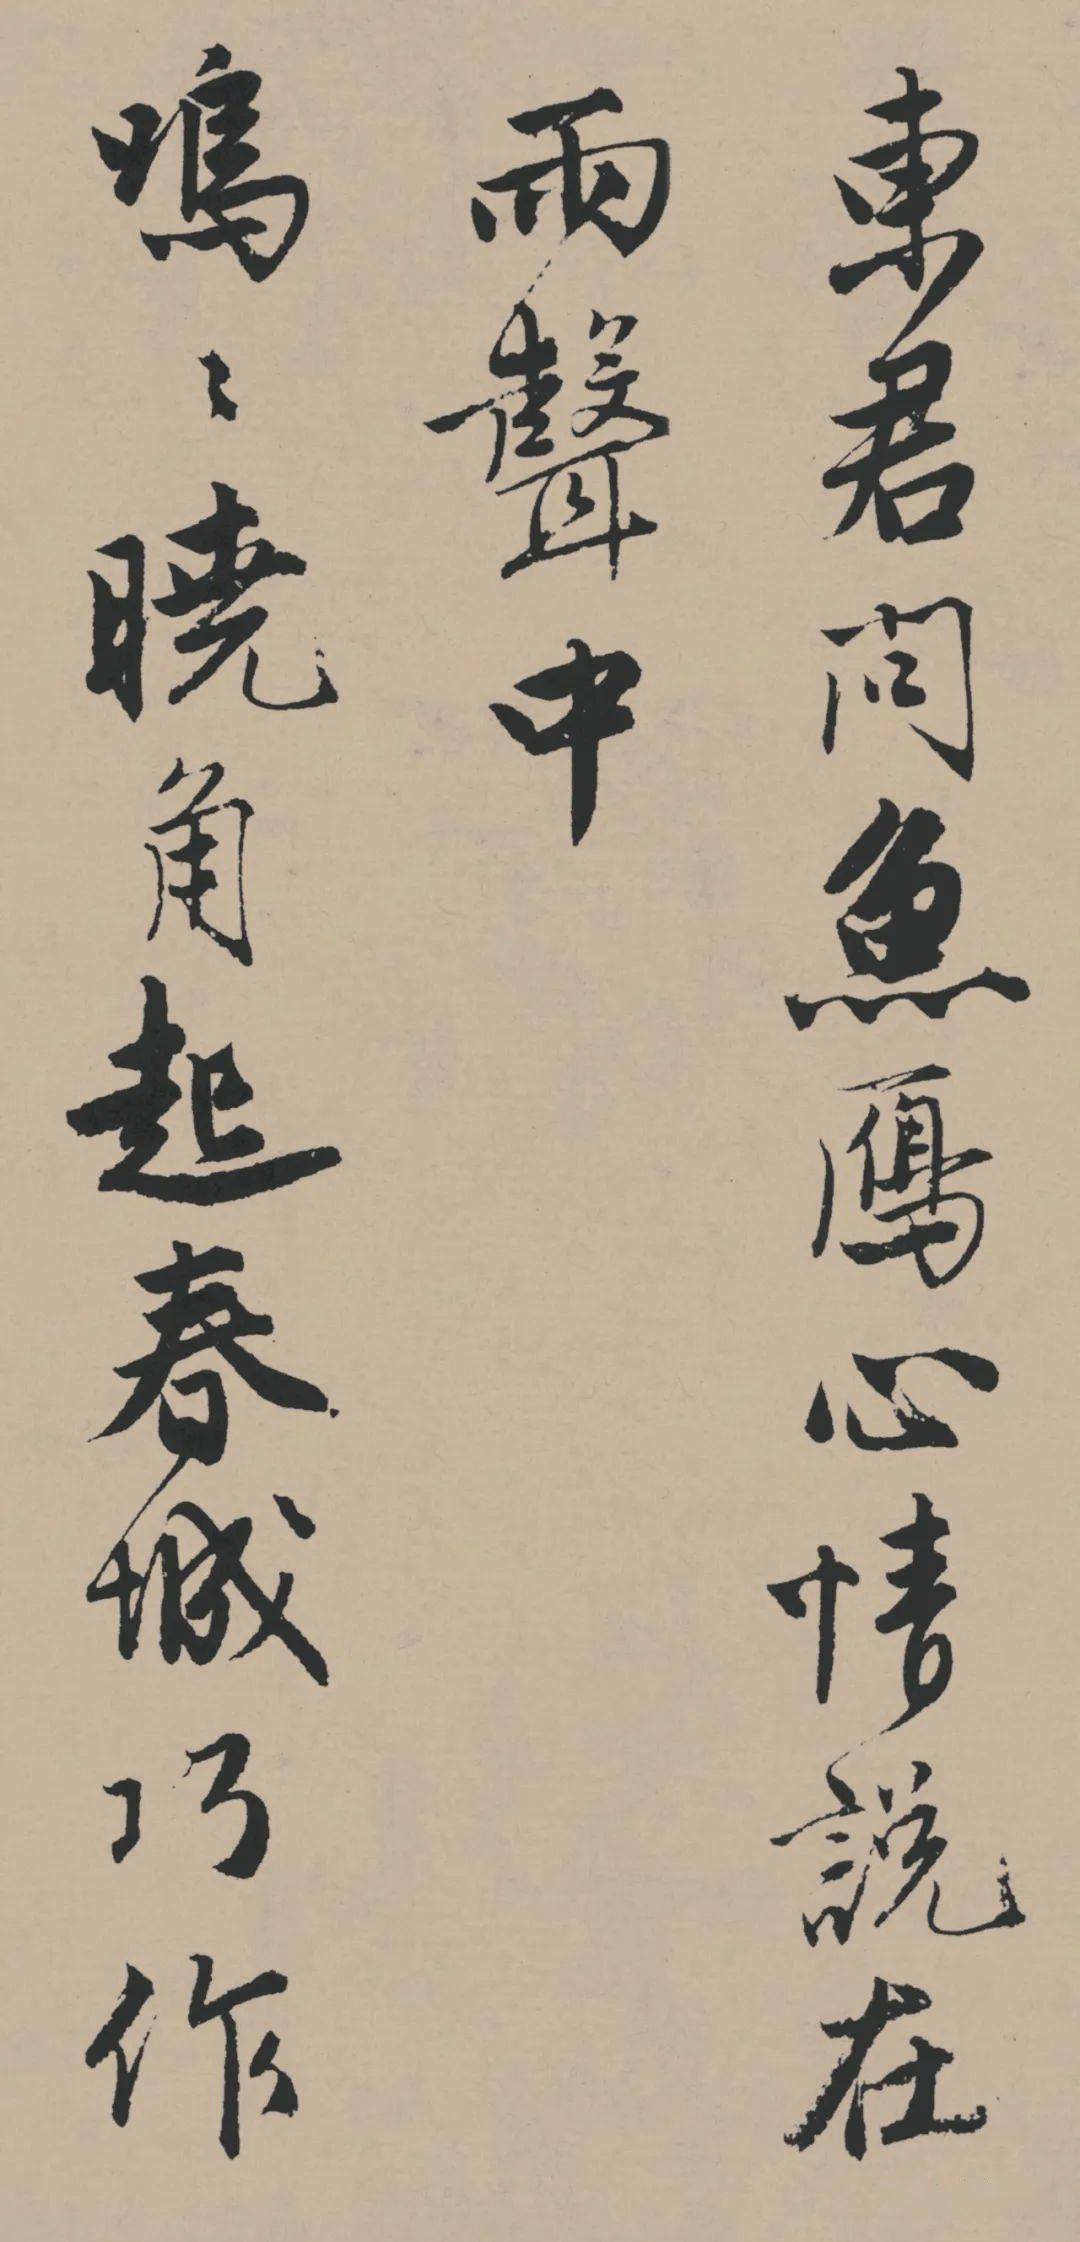 東君問魚鴈心情說在
雨聲中
嗚〻曉角起春城巧作